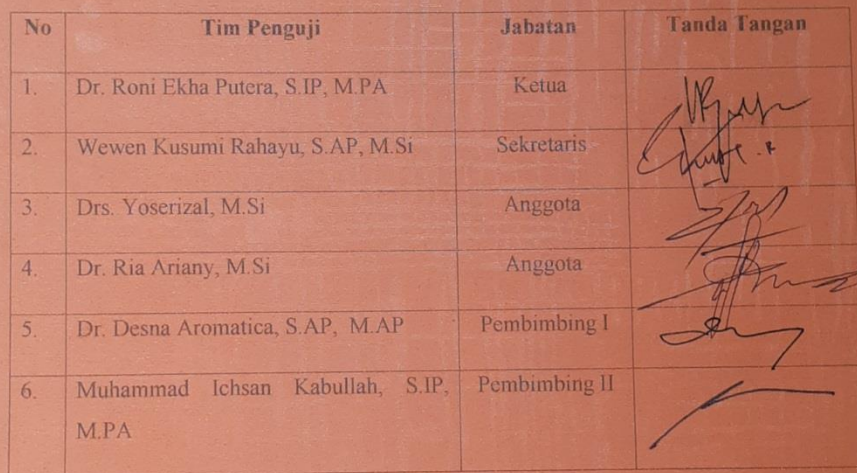 No Tim Penguji Jabatan Tanda Tangan
1. Dr. Roni Ekha Putera, S.IP, M.PA Ketua
2. Wewen Kusumi Rahayu, S.AP, M.Si Sekretaris
3. Drs. Yoserizal, M.Si Anggota
4. Dr. Ria Ariany, M.Si Anggota
5. Dr. Desna Aromatica, S.AP, M.AP Pembimbing I
6. Muhammad Ichsan Kabullah, S.IP, Pembimbing II
M.PA